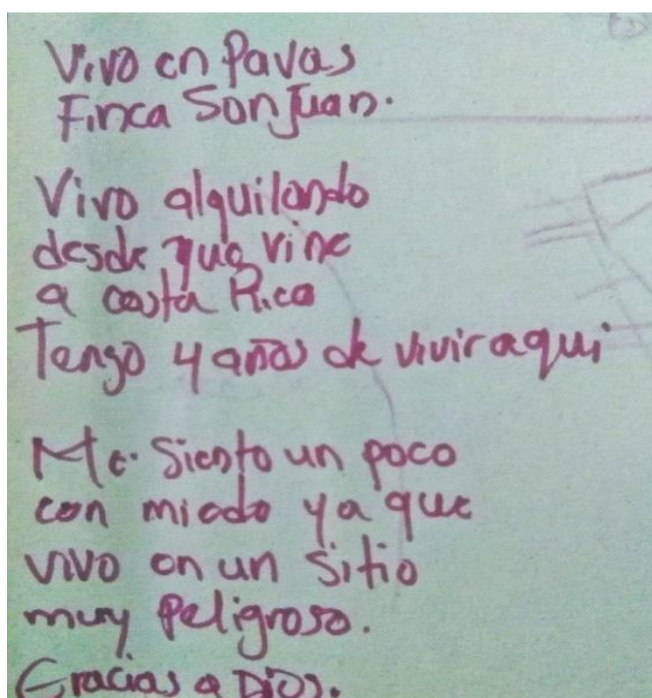 Vivo en Pavas
Finca San Juan.
Vivo alquilando
desde que vine
a costa Rica
Tengo 4 años de vivir aqui
Me siento un poco
con miedo ya que
vivo en un sitio
muy peligroso.
Gracias a Dios.